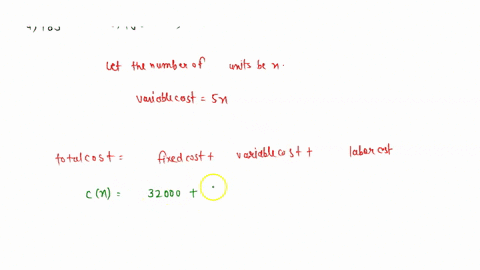 Let the number of units be n.
variable cost = 5n
total cost = fixed cost + variable cost + labor cost
c(n) = 32000 +